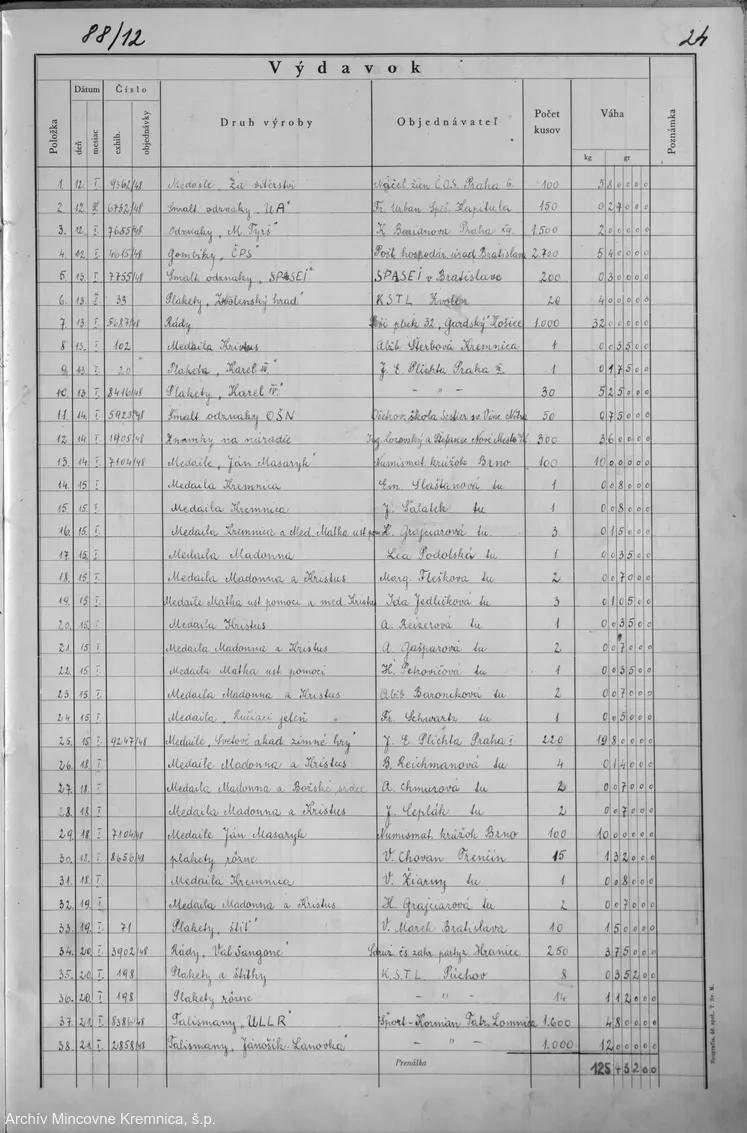 88/12 24
Výdavok
Položka Dátum deň mesiac Číslo exhib. objednávky Druh výroby Objednávateľ Počet kusov Váha kg gr Poznámka
1. 12. I. 9362/48 Medaile „Za sběrství Náčel. žien Č.O.S. Praha 100 5 8 0 0 0 0
2. 12. 6732/48 Smalt odznaky „UA" Fr. Urban Spiš. Kapitula 150 0 2 7 0 0 0
3. 12. I. 7655/48 Odznaky „M. Tyrš" K. Praha 1.500 2 0 0 0 0
4. 12. I. 4615/48 Gombíky „ČPS" Pošt. hospodár. úrad Bratislava 2.700 5 4 0 0 0 0
5. 13. I. 7755/48 Smalt. odznaky „SPASEI" SPASEI v Bratislave 200 0 3 0 0 0 0
6. 13. I. 33 Plakety „Zvolenský hrad" K.S.T.L. Zvolen 20 4 0 0 0 0
7. 13. I. 5687/48 Rády Peší pluk 32 „Gardský" Košice 1.000 32 0 0 0 0
8. 13. I. 102 Medaila Kristus Alžb. Šterbová Kremnica 1 0 0 3 5 0 0
9. 13. I. 20 Plaketa „Karel IV." J. E. Plichta Praha 1 0 1 7 5 0 0
10. 13. I. 8416/48 Plakety „Karel IV." – „ – 30 5 2 5 0 0 0
11. 14. I. 5923/48 Smalt odznaky OŠN Ošetrov. škola Sestier sv. Vinc. Nitra 50 0 7 5 0 0 0
12. 14. I. 1905/48 Známky na náradie Ing. Lozovský a Štefanec Nové Mesto 300 3 6 0 0 0 0
13. 14. I. 7104/48 Medaile „Ján Masaryk" Numismat. krúžok Brno 100 10 0 0 0 0
14. 15. I. Medaila Kremnica Em. Slaštanová tu 1 0 0 8 0 0 0
15. 15. I. Medaila Kremnica J. Šalátek tu 1 0 0 8 0 0 0
16. 15. I. Medaila Kremnica a Med. Matka ust. pom. H. Grajciarová tu 3 0 1 5 0 0 0
17. 15. I. Medaila Madonna Lea Podolská tu 1 0 0 3 5 0 0
18. 15. I. Medaila Madonna a Kristus Marg. Flešková tu 2 0 0 7 0 0 0
19. 15. I. Medaile Matka ust. pomoci a med. Kristus Ida Jedličková tu 3 0 1 0 5 0 0
20. 15. I. Medaila Kristus A. Reizerová tu 1 0 0 3 5 0 0
21. 15. I. Medaila Madonna a Kristus A. Gašparová tu 2 0 0 7 0 0 0
22. 15. I. Medaila Matka ust. pomoci H. Petrovičová tu 1 0 0 3 5 0 0
23. 15. I. Medaila Madonna a Kristus Alžb. Baroniková tu 2 0 0 7 0 0 0
24. 15. I. Medaila „Ručiací jeleň " Fr. Schwartz tu 1 0 0 5 0 0 0
25. 15. I. 9247/48 Medaile „Svetové akad. zimné hry" J. E. Plichta Praha I. 220 19 8 0 0 0 0
26. 18. I. Medaile Madonna a Kristus B. Reichmanová tu 4 0 1 4 0 0 0
27. 18. I. Medaila Madonna a Božské srdce A. Chmurová tu 2 0 0 7 0 0 0
28. 18. I. Medaila Madonna a Kristus J. Ceplák tu 2 0 0 7 0 0 0
29. 18. I. 7104/48 Medaile Ján Masaryk Numismat. krúžok Brno 100 10 0 0 0 0
30. 18. I. 8656/48 plakety rôzne V. Chovan Trenčín 15 1 3 2 0 0 0
31. 18. I. Medaila Kremnica V. Žiarny tu 1 0 0 8 0 0 0
32. 19. I. Medaila Madonna a Kristus H. Grajciarová tu 2 0 0 7 0 0 0
33. 19. I. 71 Plakety „štít" V. Marek Bratislava 10 1 5 0 0 0 0
34. 20. I. 3902/48 Rády „Val Sangone" Sdruž. čs. zahr. partyz. Hranice 250 3 7 5 0 0 0
35. 20. I. 198 Plakety a štítky K.S.T.L. Púchov 8 0 3 5 2 0 0
36. 20. I. 198 Plakety rôzne – „ – 14 1 1 2 0 0 0
37. 21. I. 8386/48 Talismany „ULLR" Šport-Horman Tatr. Lomnica 1.600 4 8 0 0 0 0
38. 21. I. 2858/48 Talismany „Jánošík-Lanovka" – „ – 1.000 12 0 0 0 0
Prenáška 125 4 3 2 0 0
Archív Mincovne Kremnica, š.p.